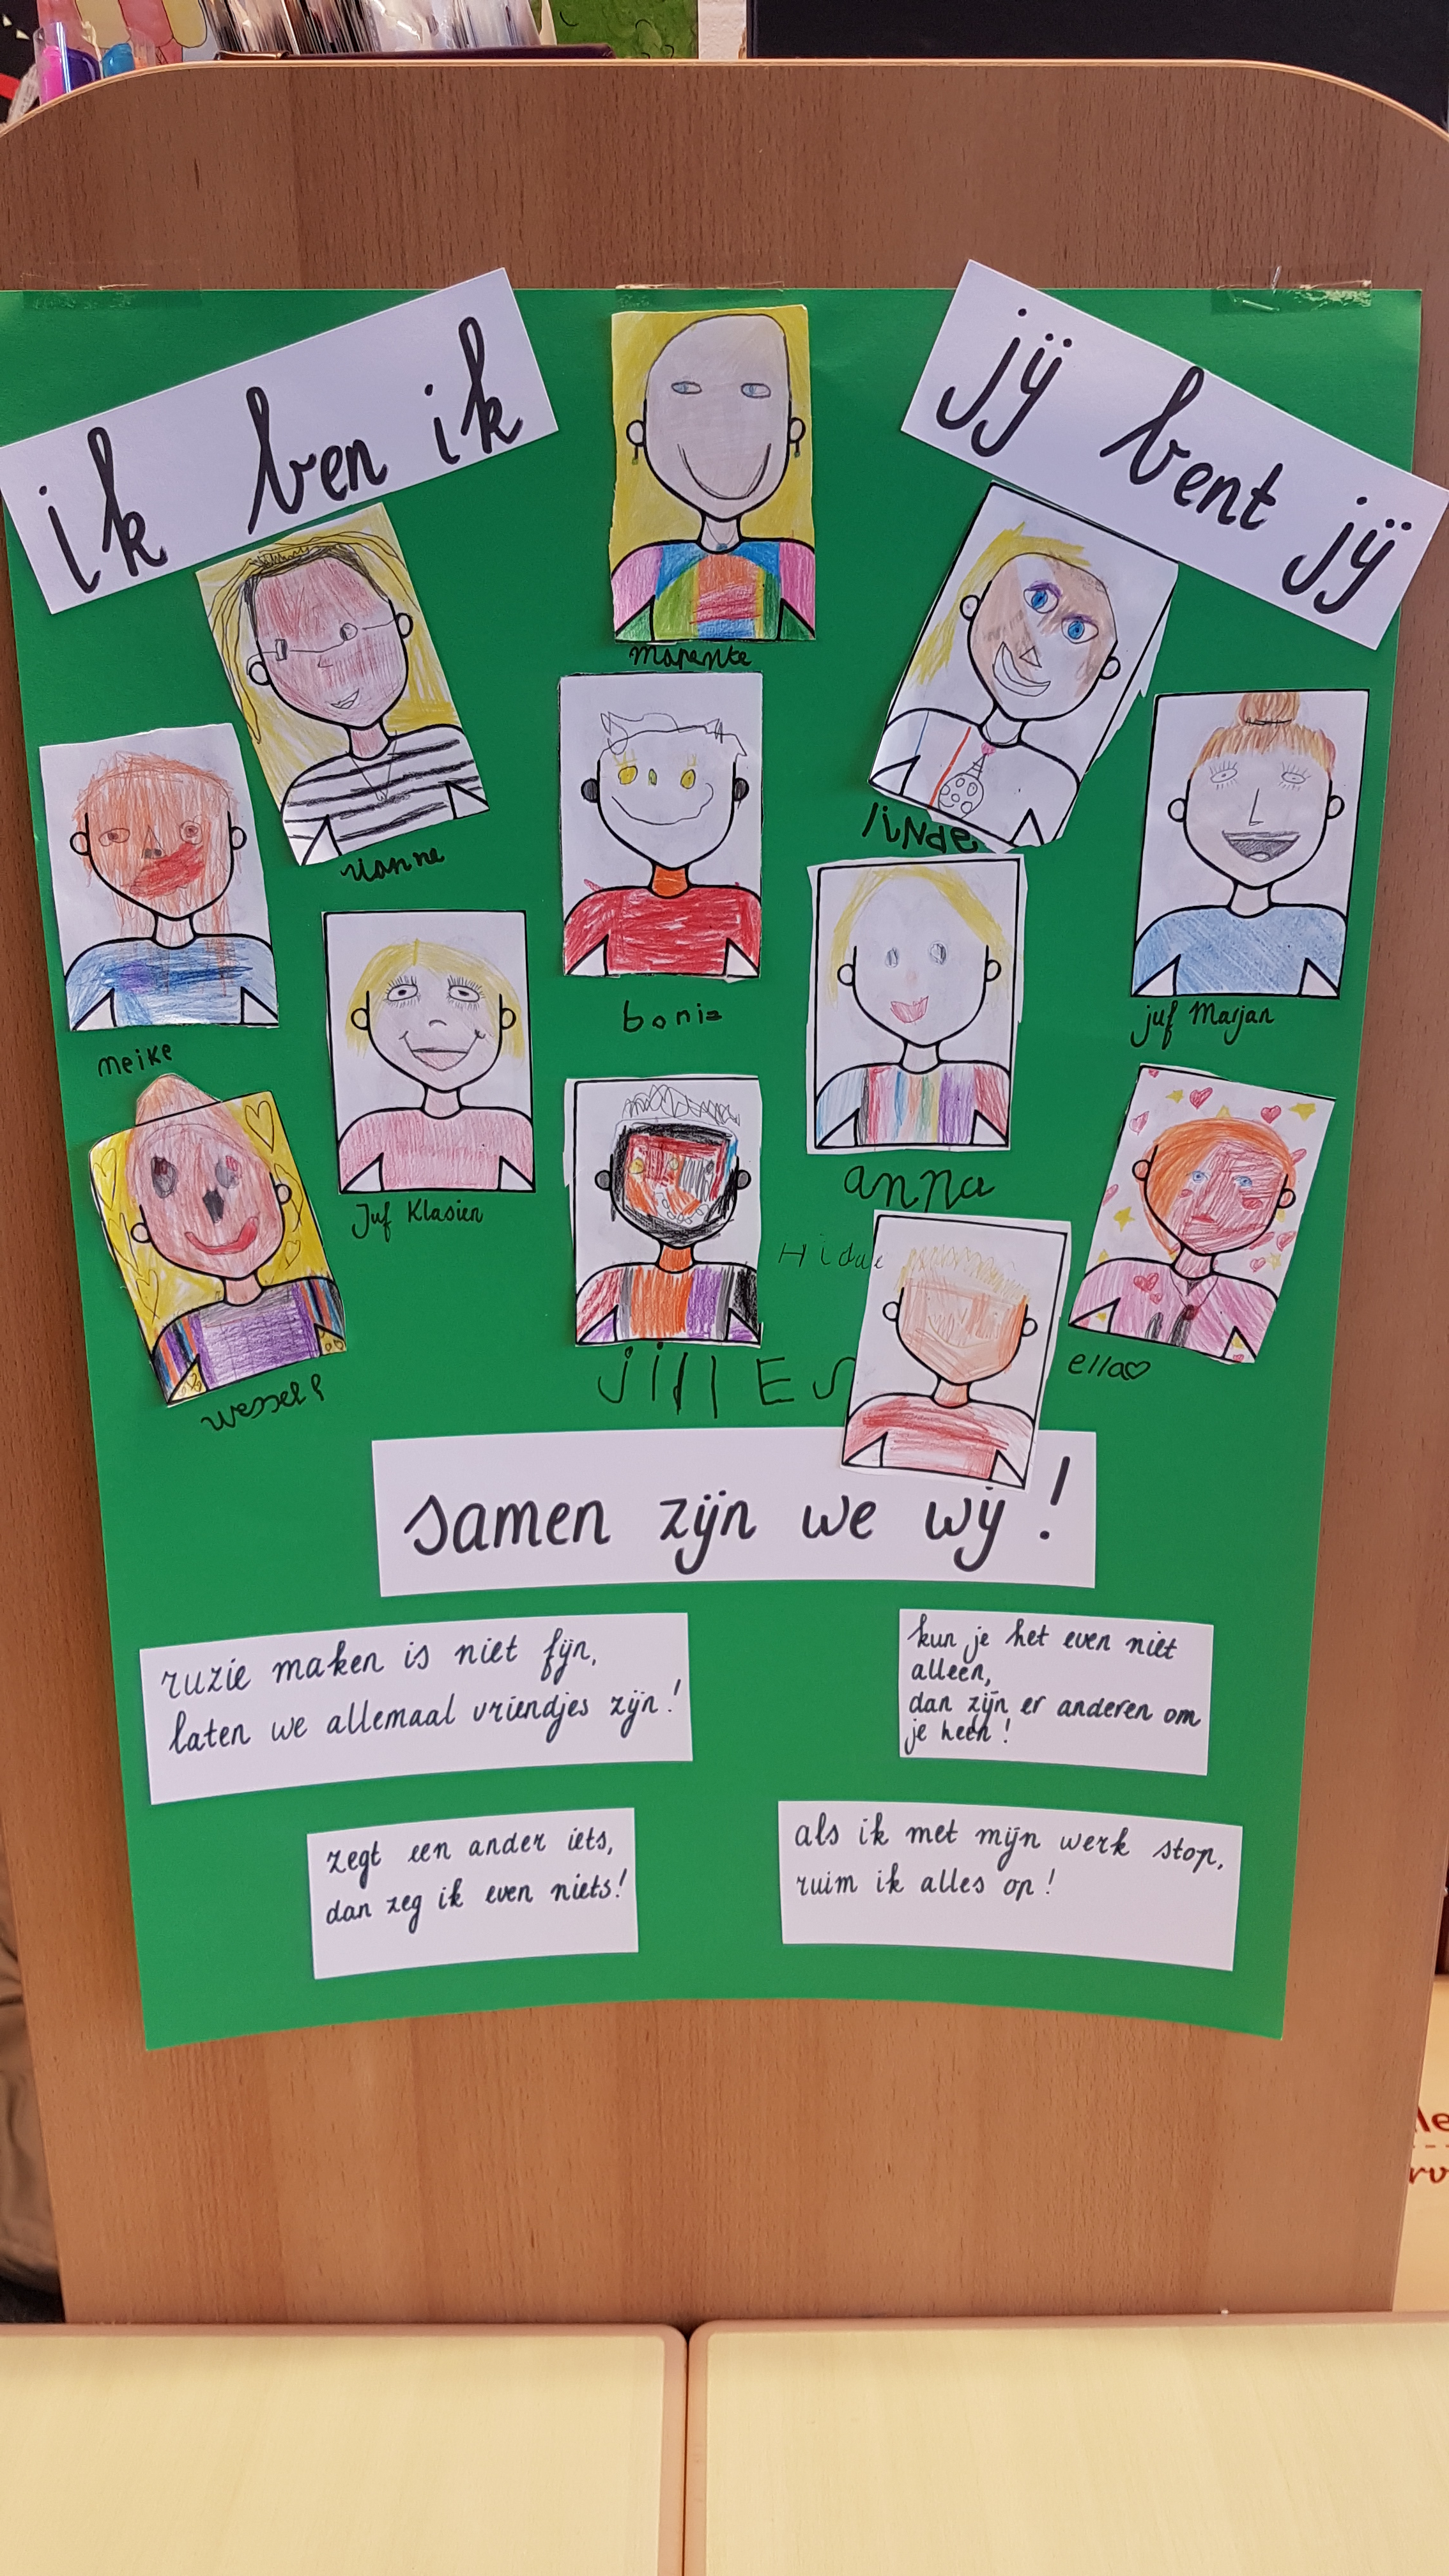 ik ben ik
jij bent jij
marenke
vianne
linde
meike
bonie
juf Marjan
Juf Klasien
anna
wessel
jillES
ella♡
samen zijn we wij!
ruzie maken is niet fijn,
laten we allemaal vriendjes zijn!
kun je het even niet
alleen,
dan zijn er anderen om
je heen!
zegt een ander iets,
dan zeg ik even niets!
als ik met mijn werk stop,
ruim ik alles op!